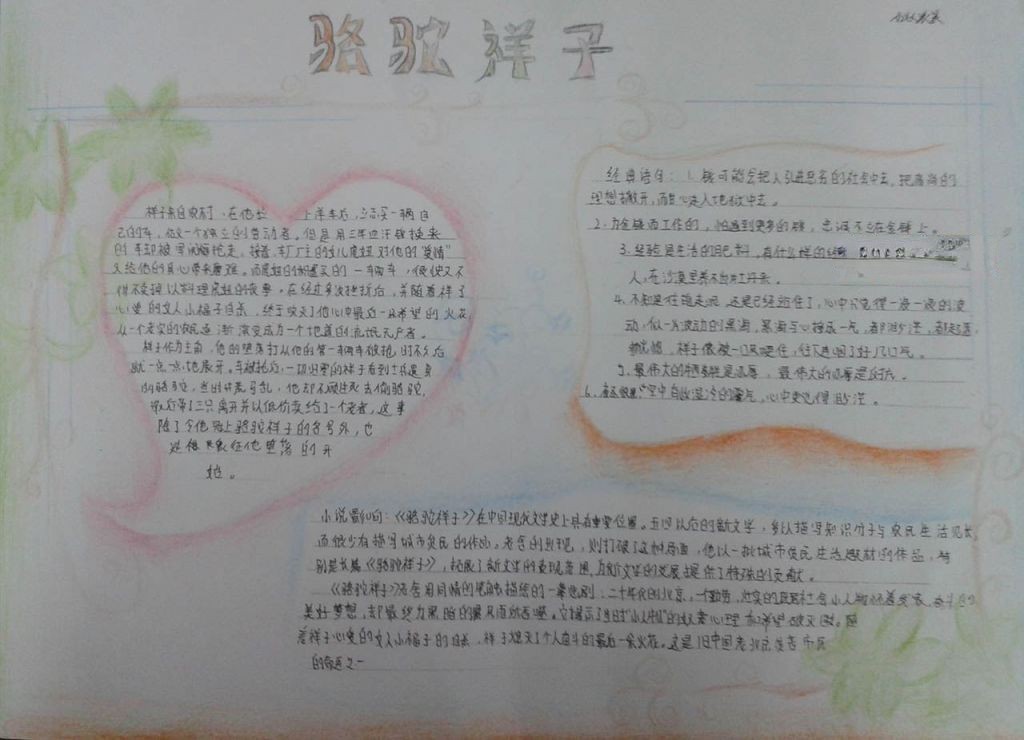 骆驼祥子
祥子来自农村,在他 上洋车后,立志买一辆自
己的车,做一个独立的劳动者。但是用三年血汗钱换来
的车却被 抢走。接着,车厂主的女儿虎妞对他的“爱情”
又给他的身心带来磨难。而虎妞的 的一辆车,很快又不
得不变卖以料理虎妞的丧事。在经过多次挫折后,并随着祥子
心爱的女人小福子自杀,终于熄灭了他心中最后一丝希望的火花
从一个老实的农民逐渐演变成为一个地道的流氓无产者。
祥子作为主角,他的堕落打从他的第一辆车被抢,时不久后
就一点一点地展开。车被抢后,一切退票的祥子看到士兵遗弃
的骆驼,当时 荒马乱,他却不顾性死去偷骆驼,
最后带了三只离开并以低价卖给了一个老者,这事
除了令他 上骆驼祥子的名号外,也
是很 他堕落的开
始。
经典语句:1.钱可能会把人引进恶劣的社会中去,把高尚的
理想撇开,而甘心走入地狱中去。
2.为金钱而工作的,怕遇到更多的钱,忠诚不立在金钱上。
3.经验是生活的肥料,有什么样的经验
人,在沙漠里养不出牡丹来。
4.不知是往前走呢,还是已经站住了,心中只觉得一浪一浪的波
动,似一片波动的黑海,黑海与心接成一气,都渺茫,都起落,
都恍惚,祥子像被一口风噎住,往下连咽了好几口气。
5.最伟大的牺牲是忍辱,最伟大的忍辱是反抗。
6. 空中 湿冷的雾气,心中更觉得渺茫。
小说影响:《骆驼祥子》在中国现代文学史上具有重要位置。五四以后的新文学,多以描写知识分子与农民生活见长,
而很少有描写城市贫民的作品。老舍的出现,则打破了这种局面,他以一批城市贫民生活题材的作品,特
别是长篇《骆驼祥子》,拓展了新文学的表现范围,为新文学的发展提供了特殊的贡献。
《骆驼祥子》老舍用同情的笔触描绘的一幕悲剧:二十年代的北京,一个勤劳、壮实的底层社会小人物怀着发家、奋斗的
美好梦想,却最终为黑暗的暴风雨所吞噬。它揭示了当时“小人物”的奴隶心理和希望破灭 。随
着祥子心爱的女人小福子的自杀,祥子熄灭了个人奋斗的最后一朵火花。这是旧中国老北京贫苦市民
的命运之一